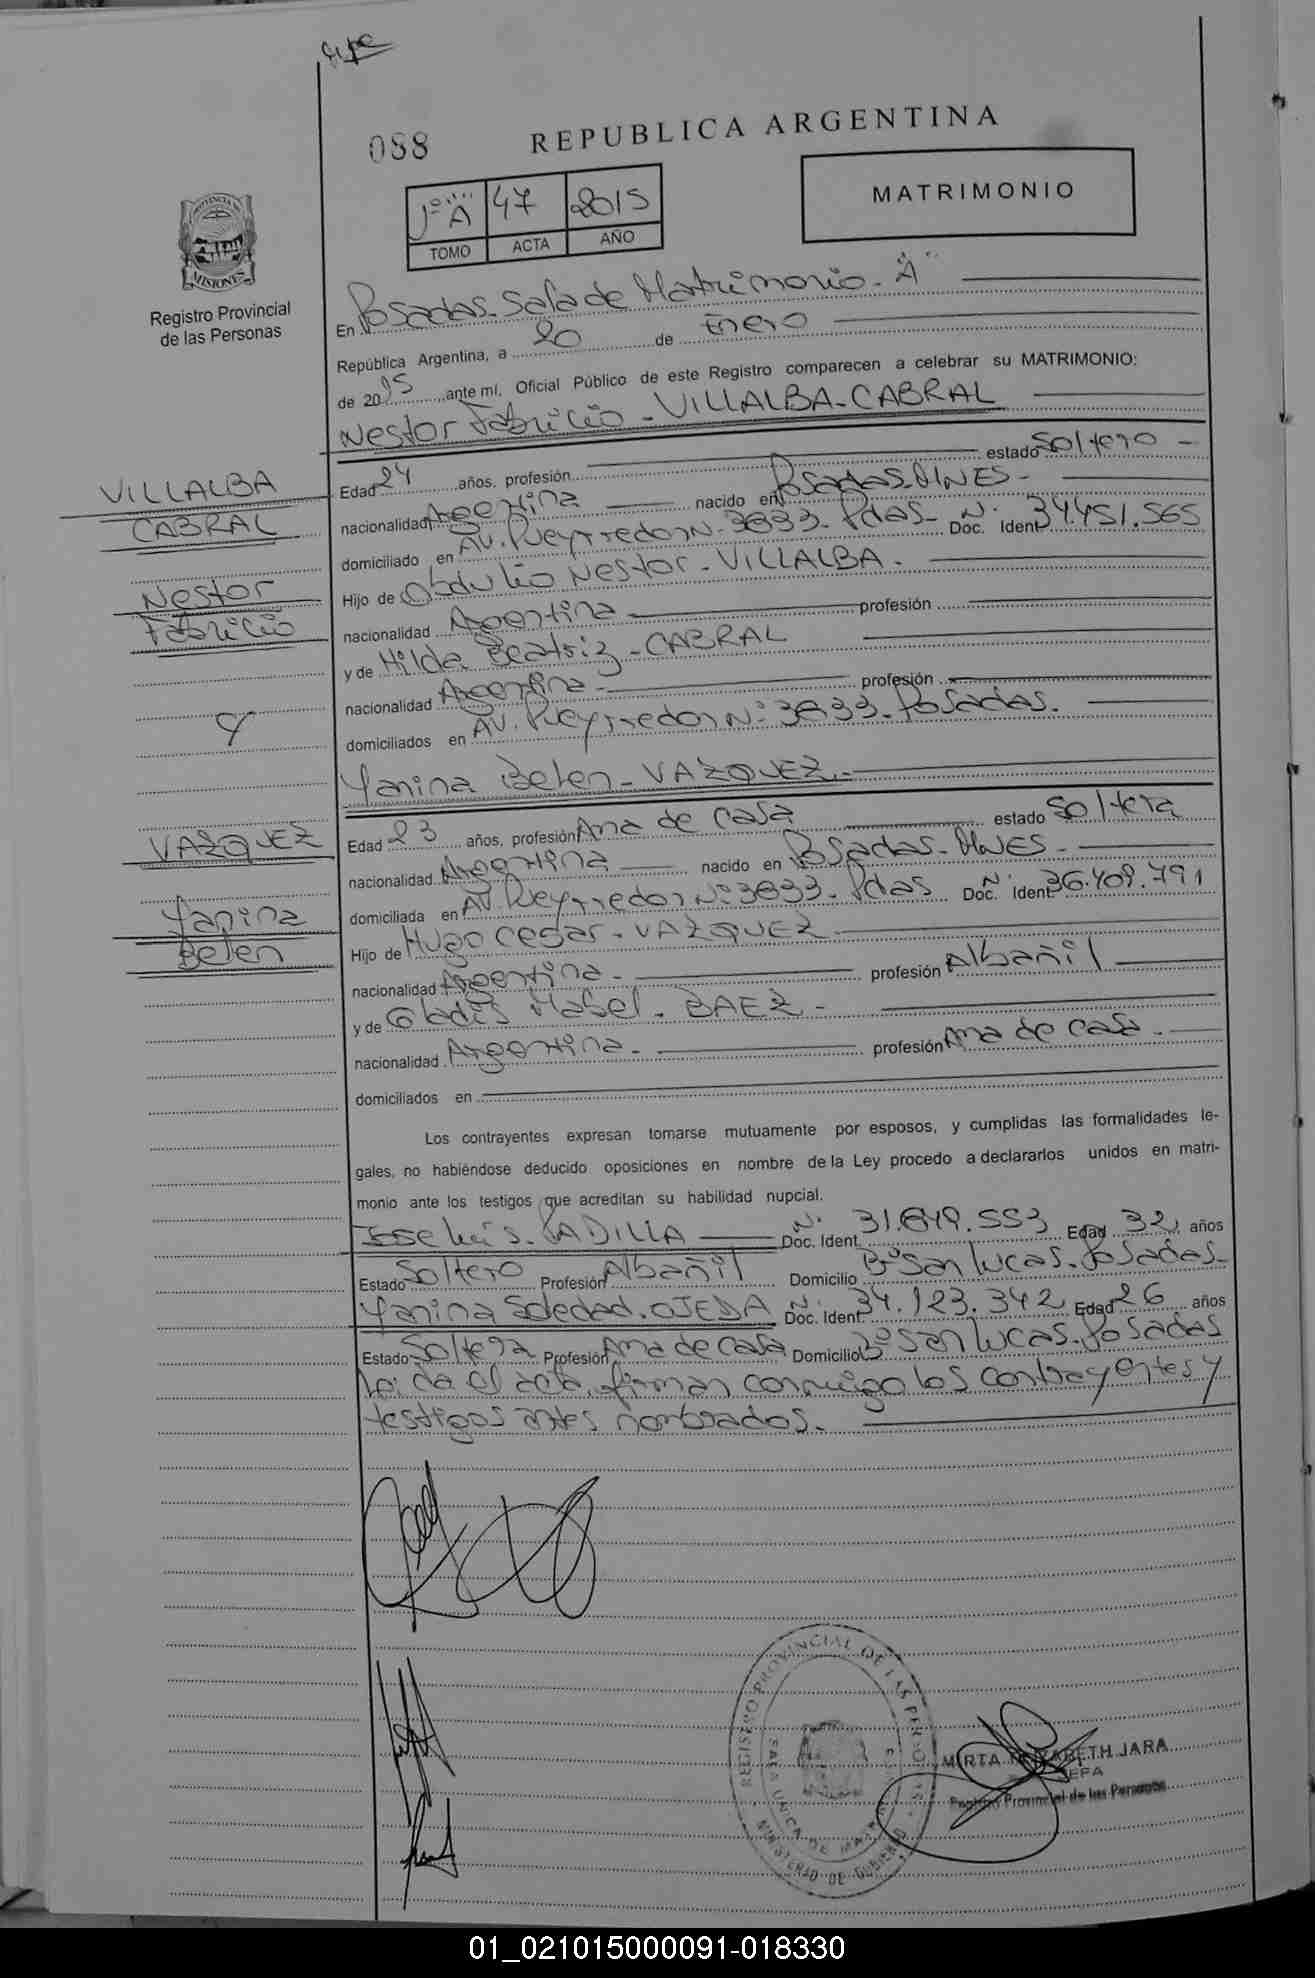 088
REPUBLICA ARGENTINA
1º "A" 47 2015
TOMO ACTA AÑO
MATRIMONIO
PROVINCIA DE
MISIONES
Registro Provincial
de las Personas
En Posadas. Sala de Matrimonio. "A"
República Argentina, a 20 de Enero
de 2015 ante mí, Oficial Público de este Registro comparecen a celebrar su MATRIMONIO:
Nestor Fabricio - VILLALBA - CABRAL
VILLALBA
CABRAL
Nestor
Fabricio
y
VAZQUEZ
Yanina
Belen
Edad 24 años, profesión estado Soltero -
nacionalidad Argentina nacido en Posadas. MNES -
domiciliado en Av. Pueyrredon Nº 3833 - Pdas - Nº Doc. Ident 34.451.565
Hijo de Obdulio Nestor - VILLALBA -
nacionalidad Argentina profesión
y de Hilda Beatriz - CABRAL
nacionalidad Argentina - profesión
domiciliados en Av. Pueyrredon Nº 3833 - Posadas.
Yanina Belen - VAZQUEZ -
Edad 23 años, profesión Ama de casa estado Soltera
nacionalidad Argentina nacido en Posadas - MNES -
domiciliada en Av. Pueyrredon Nº 3833 - Pdas Nº Doc. Ident 36.409.791
Hijo de Hugo Cesar - VAZQUEZ
nacionalidad Argentina - profesión Albañil
y de Gladis Mabel - BAEZ -
nacionalidad Argentina - profesión Ama de casa -
domiciliados en
Los contrayentes expresan tomarse mutuamente por esposos, y cumplidas las formalidades le-
gales, no habiéndose deducido oposiciones en nombre de la Ley procedo a declararlos unidos en matri-
monio ante los testigos que acreditan su habilidad nupcial.
Jose Luis - PADILLA Nº Doc. Ident. 31.649.553 Edad 32 años
Estado Soltero Profesión Albañil Domicilio Bº San Lucas - Posadas -
Yanina Soledad - OJEDA Nº Doc. Ident. 34.123.342 Edad 26 años
Estado Soltera Profesión Ama de casa Domicilio Bº San Lucas - Posadas
Leida el acta, firman conmigo los contrayentes y
testigos antes nombrados -
REGISTRO PROVINCIAL DE LAS PERSONAS
SALA UNICA DE
MINISTERIO DE GOBIERNO
MIRTA ELIZABETH JARA
JEFA
Registro Provincial de las Personas
01_021015000091-018330